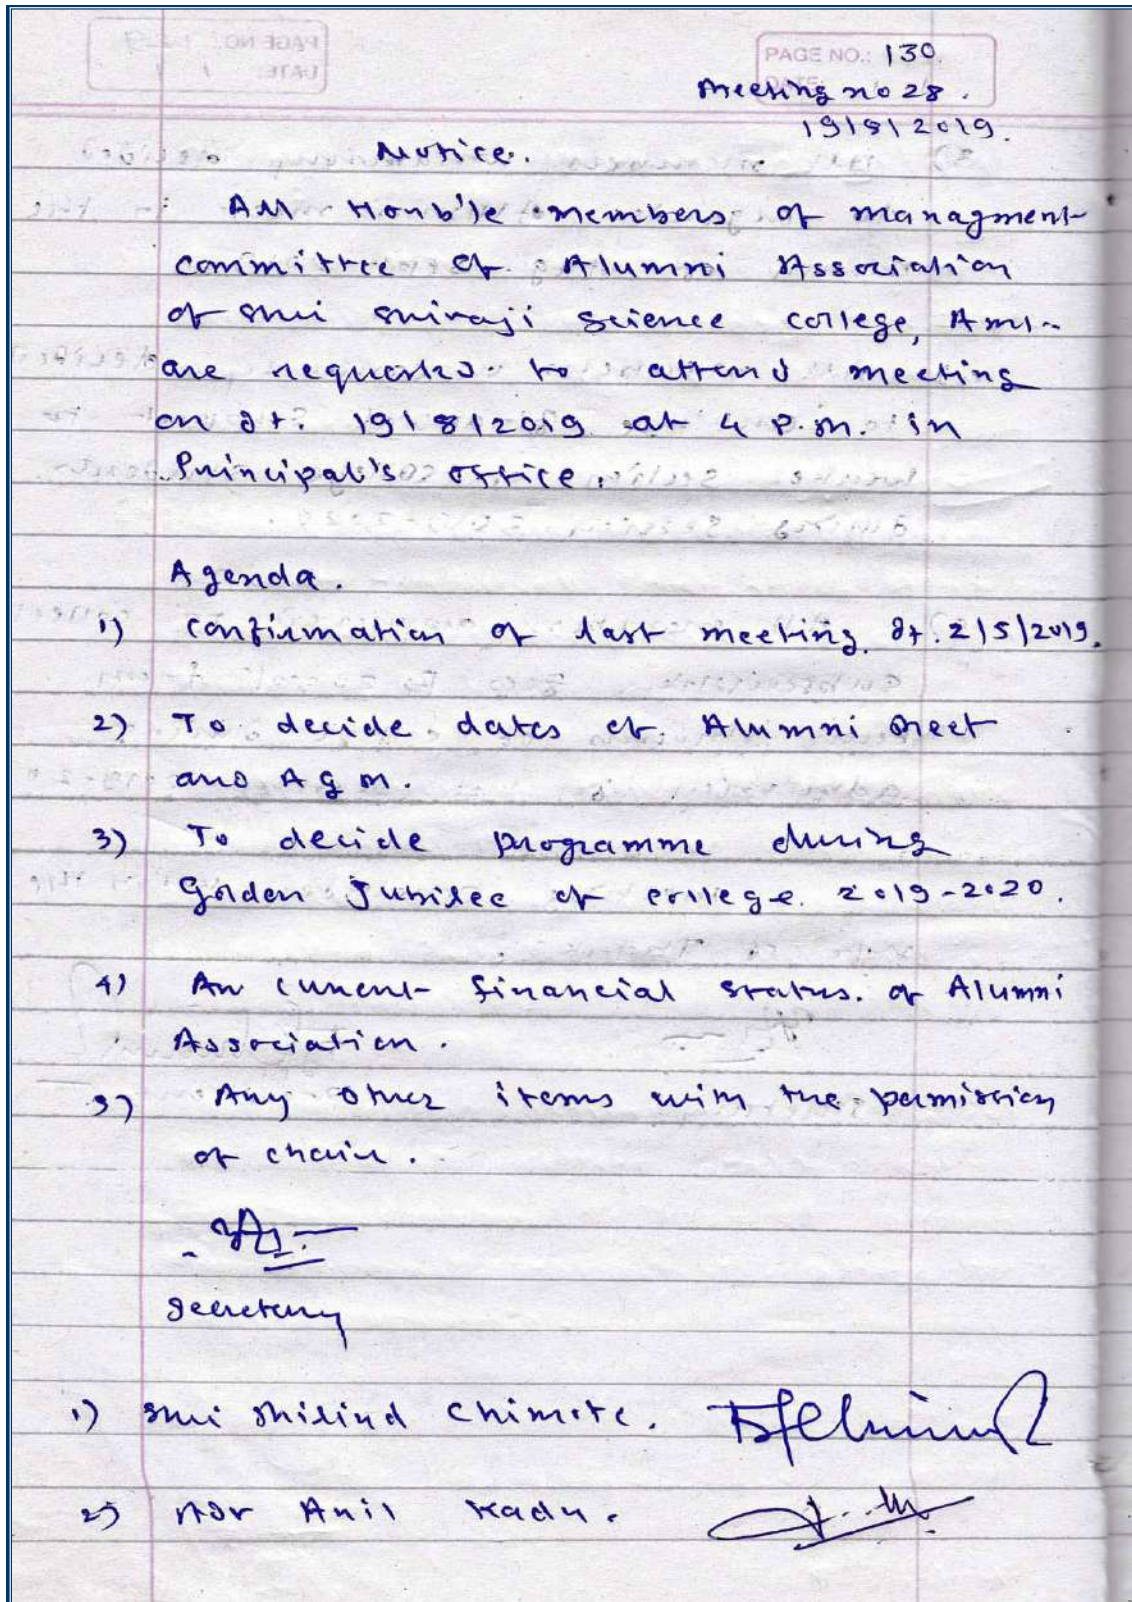 PAGE NO.: 130.
DATE:
Meeting no 28.
19/8/2019.
Notice.
All Honb'le members of managment
committee of Alumni Association
of Shri Shivaji Science college, Amt.
are requested to attend meeting
on dt. 19/8/2019 at 4 P.m. in
Principal's office.
Agenda.
1) Confirmation of last meeting dt. 2/5/2019.
2) To decide dates of Alumni meet
and AGM.
3) To decide programme during
Golden Jubilee of college 2019-2020.
4) current financial status of Alumni
Association.
5) Any other items with the permission
of chair.
Secretary
1) Shri Milind Chimote.
2) Adv Anil Kadu.